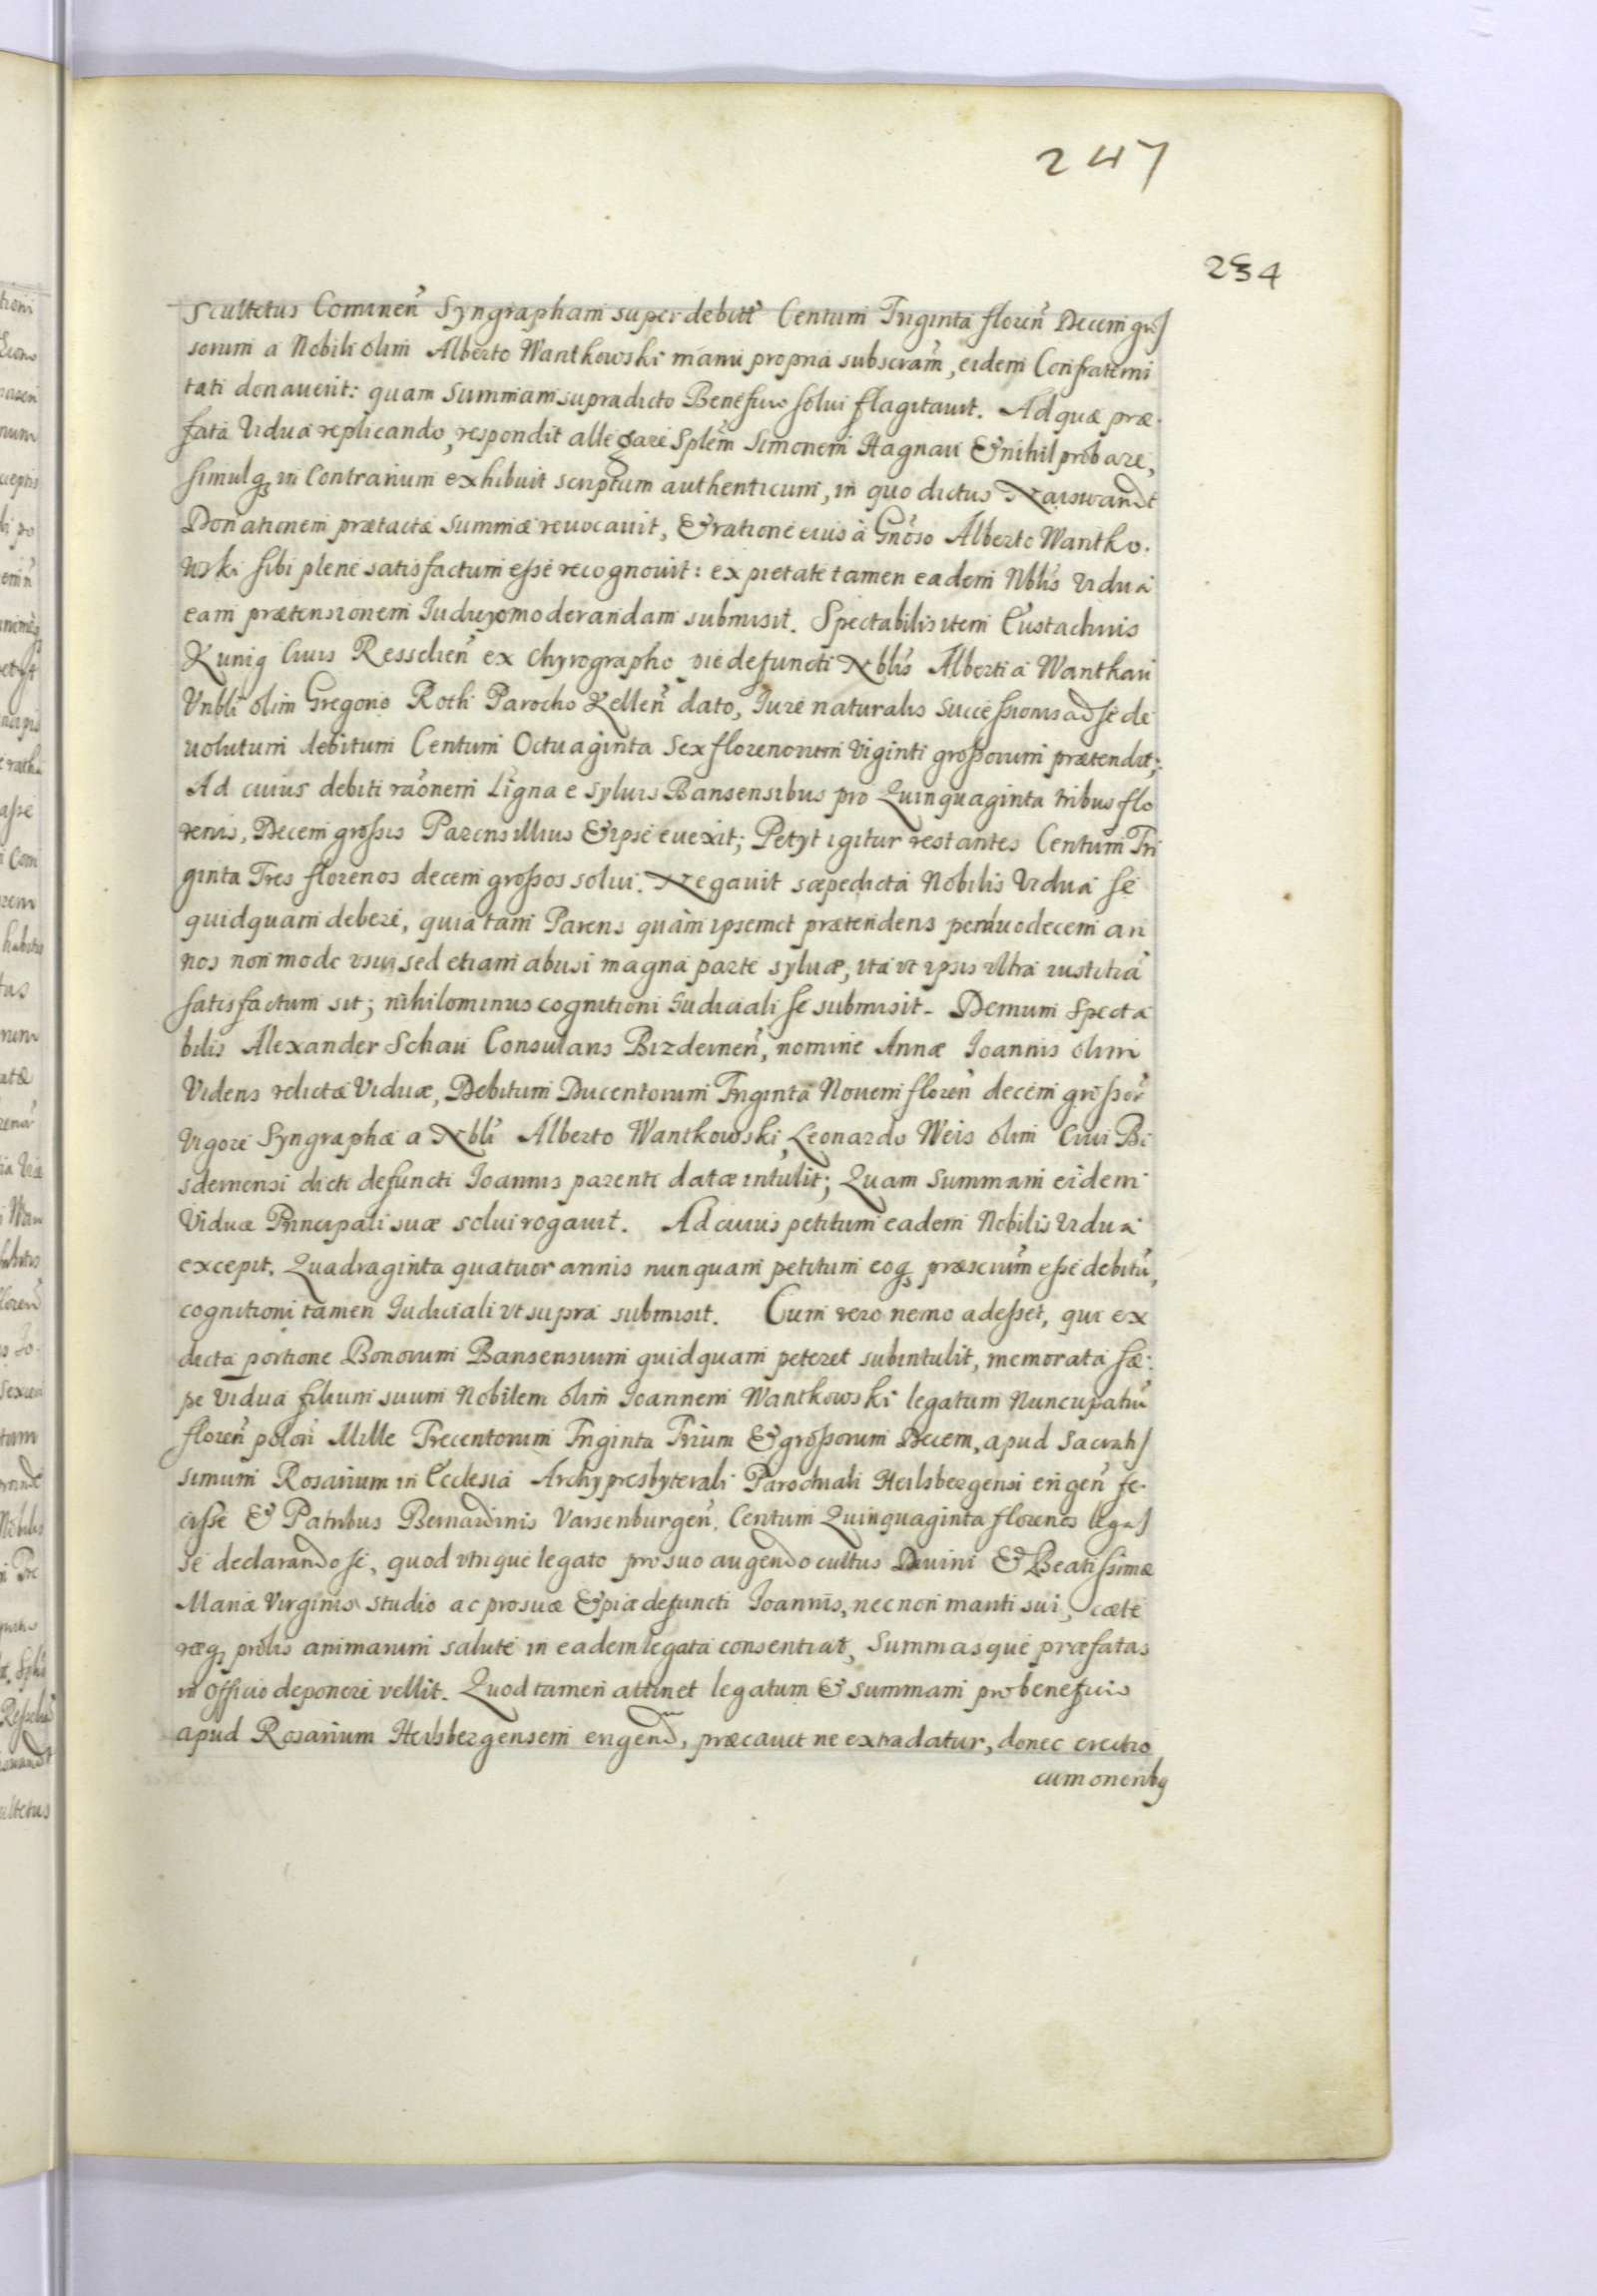 247
254
Scultetus Cominen̄ Syngrapham super debitū Centum Triginta floren̄ Decem gros
sorum a Nobili olim Alberto Wantkowski manu propria subscram̄, eidem Confraterni
tati donauerit: quam Summam supradicto Beneficio solui flagitauit. Ad quæ præ.
fata Vidua replicando, respondit allegare Splēm Simonem Hagnau & nihil probare,
simulq; in Contrarium exhibuit scriptum authenticum, in quo dictus Naiswandt
Donationem prætactæ Summæ reuocauit, & ratione eius à Gn̄oso Alberto Wantko.
wski sibi plene satisfactum esse recognouit: ex pietate tamen eadem Nblis Vidua
eam prætensionem Iudicio moderandam submisit. Spectabilis item Eustachius
Kunig Ciuis Resselien̄ ex Chyrographo pie defuncti Nblis Alberti a Wantkau
Vnbli olim Gregorio Roth Parocho Kellen̄ dato, Iure naturalis Successionis ad se de
uolutum debitum Centum Octuaginta Sex florenorum Viginti grossorum prætendit;
Ad cuius debiti rāonem Ligna e syluis Bansensibus pro Quinquaginta tribus flo
renis, Decem grossis Parens illius & ipse euexit; Petyt igitur restantes Centum Tri
ginta Tres florenos decem grossos solui. Negauit sæpedicta Nobilis Vidua se
quidquam debere, quia tam Parens quàm ipsemet prætendens per duodecem an
nos non modo vsui sed etiam abusi magna parte syluæ, ita vt ipsis vltra iustitiā
satisfactum sit; nihilominus cognitioni Iudiciali se submisit. Demum Specta
bilis Alexander Schau Consularis Bizdeinen̄, nomine Annæ Ioannis olim
Videns relictæ Viduæ, Debitum Ducentorum Triginta Nouem floren̄ decem grossor̄
Vigore Syngraphæ a Nbli Alberto Wantkowski Leonardo Weis olim Ciui Bi
sdemensi dicti defuncti Ioannis parenti datæ intulit; Quam Summam eidem
Viduæ Principali suæ solui rogauit. Ad cuius petitum eadem Nobilis Vidua
excepit. Quadraginta quatuor annis nunquam petitum eoq; præscūm esse debitū,
cognitioni tamen Iudiciali vt supra submisit. Cum vero nemo adesset, qui ex
dicta portione Bonorum Bansensium quidquam peteret subintulit, memorata sæ:
pe Vidua filium suum Nobilem olim Ioannem Wantkowski legatum Nuncupatiū
floren̄ polon̄ Mille Trecentorum Triginta Trium & grossorum Decem, apud Sacratis
simum Rosarium in Ecclesia Archypresbyterali Parochiali Heilsbergensi erigen̄ fe.
cisse & Patribus Bernardinis Varsenburgen̄. Centum Quinquaginta florenos legas
se declarando se, quod vtrique legato pro suo augendo cultus Diuini & Beatissimæ
Mariæ Virginis studio ac pro suæ & piæ defuncti Ioannis, nec non mariti sui, cæte
ræq; prolis animarum salute in eadem legata consentiat, Summasque præfatas
in Officio deponere vellit. Quod tamen attinet legatum & summam pro beneficio
apud Rosarium Heilsbergensem erigend̄, præcauet ne extradatur, donec erectio
cum oneribq